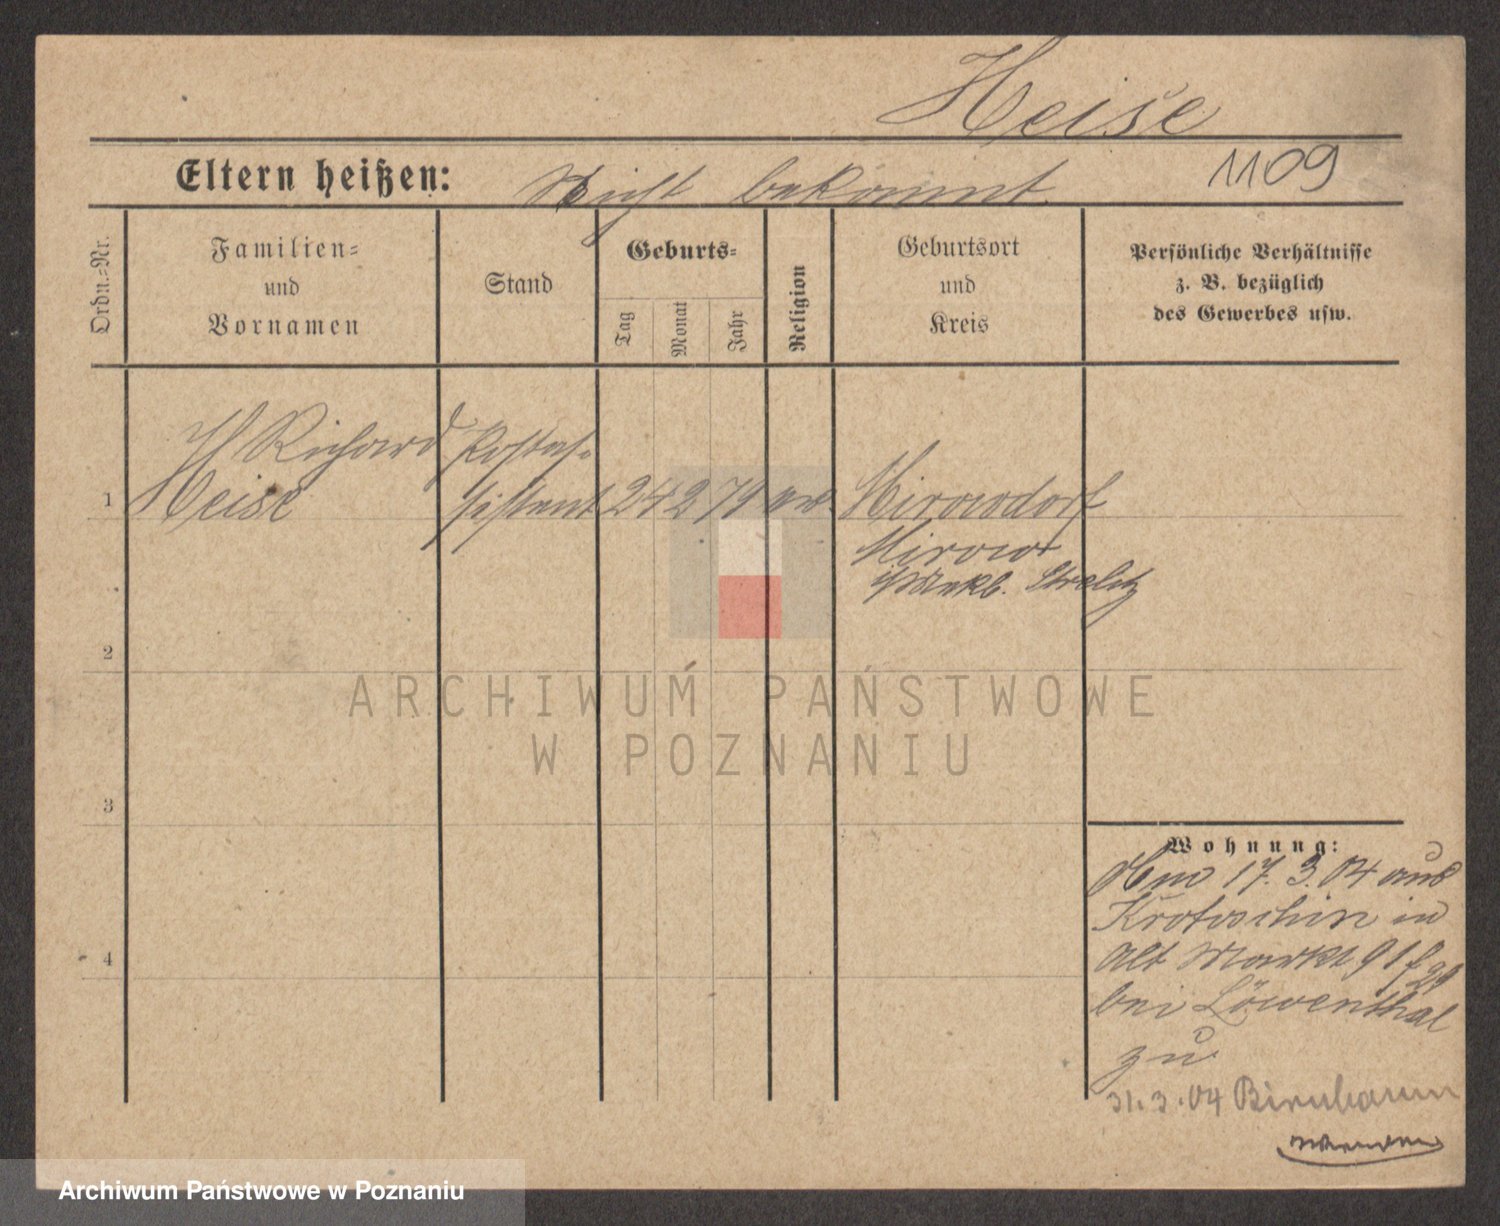 Heise
1109
Eltern heißen: Nicht bekannt.
Ordn.=Nr.
Familien=
und
Vornamen
Stand
Geburts=
Tag
Monat
Jahr
Religion
Geburtsort
und
Kreis
Persönliche Verhältnisse
z. B. bezüglich
des Gewerbes usw.
1
H Richard
Heise
Postas-
sistent
24 2 79 ev.
Mirowdorf
Mirow
i/Mekb. Strelitz
2
3
4
ARCHIWUM PAŃSTWOWE
W POZNANIU
Wohnung:
17. 3. 04 aus
Krotoschin in
Alt Markt 91
bei Löwenthal
zu
31.3.04 Birnbaum
Archiwum Państwowe w Poznaniu